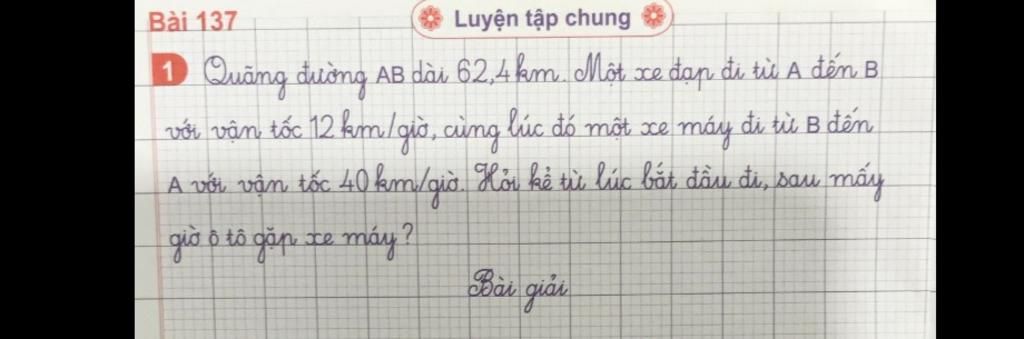 Bài 137
Luyện tập chung
1 Quãng đường AB dài 62,4 km. Một xe đạp đi từ A đến B
với vận tốc 12 km/giờ, cùng lúc đó một xe máy đi từ B đến
A với vận tốc 40 km/giờ. Hỏi kể từ lúc bắt đầu đi, sau mấy
giờ ô tô gặp xe máy?
Bài giải